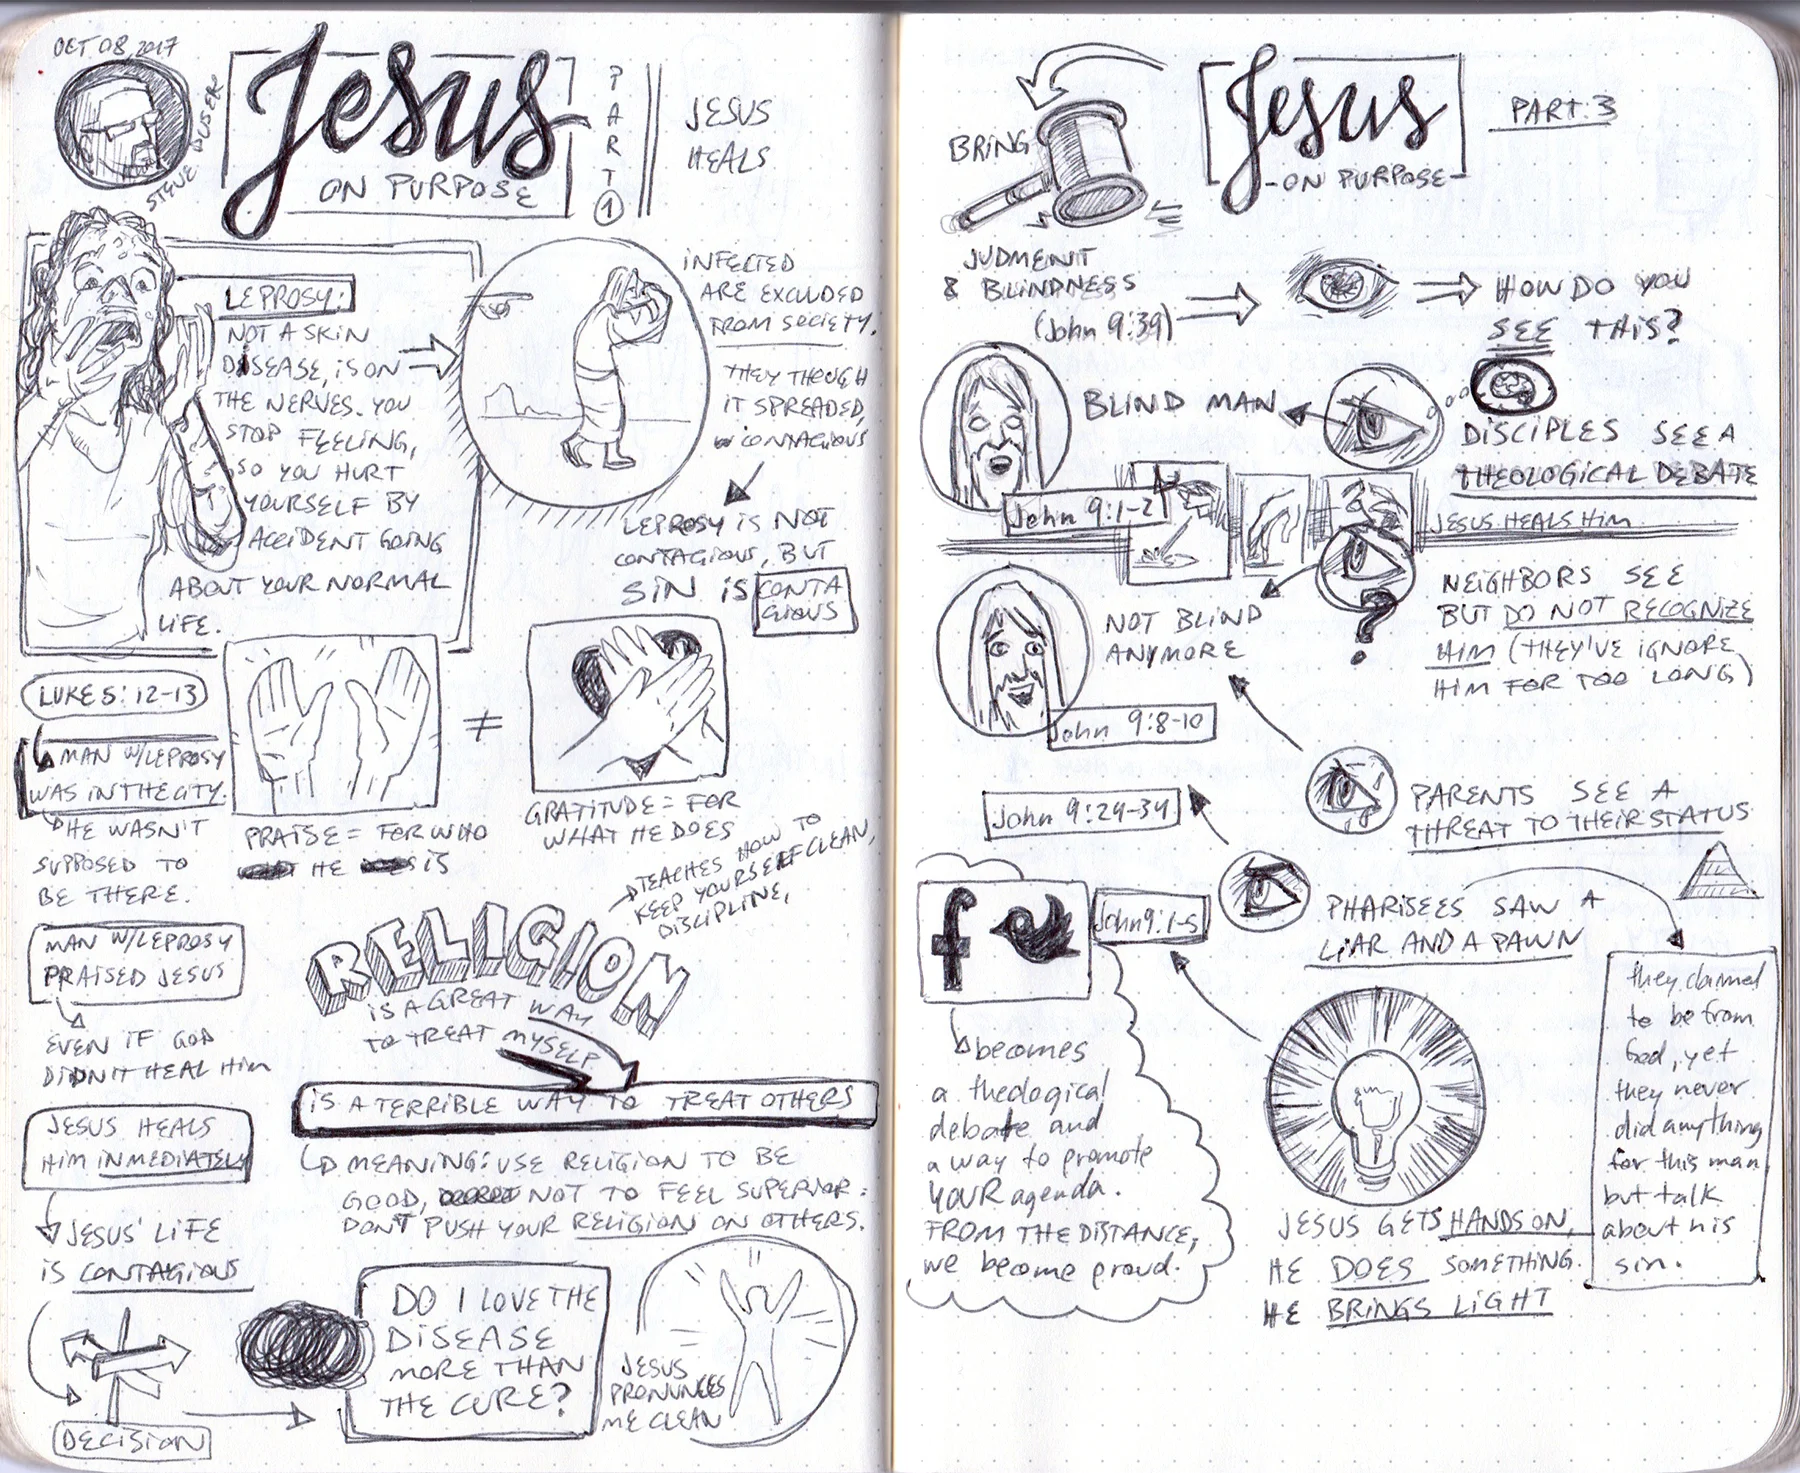 OCT 08, 2017
Jesus
ON PURPOSE
PART 1
JESUS
HEALS
LEPROSY:
NOT A SKIN
DISEASE, IS ON
THE NERVES. YOU
STOP FEELING,
SO YOU HURT
YOURSELF BY
ACCIDENT GOING
ABOUT YOUR NORMAL
LIFE.
INFECTED
ARE EXCLUDED
FROM SOCIETY.
THEY THOUGH
IT SPREADED,
CONTAGIOUS
LEPROSY IS NOT
CONTAGIOUS, BUT
SIN IS CONTA
GIOUS
LUKE 5: 12-13
MAN W/LEPROSY
WAS IN THE CITY.
HE WASN'T
SUPPOSED TO
BE THERE.
PRAISE = FOR WHO
HE IS
≠
GRATITUDE = FOR
WHAT HE DOES
MAN W/LEPROSY
PRAISED JESUS
EVEN IF GOD
DIDN'T HEAL HIM
JESUS HEALS
HIM INMEDIATELY
JESUS' LIFE
IS CONTAGIOUS
DECISION
TEACHES HOW TO
KEEP YOURSELF CLEAN,
DISCIPLINE,
RELIGION
IS A GREAT WAY
TO TREAT MYSELF
IS A TERRIBLE WAY TO TREAT OTHERS
MEANING: USE RELIGION TO BE
GOOD, NOT TO FEEL SUPERIOR:
DON'T PUSH YOUR RELIGION ON OTHERS.
DO I LOVE THE
DISEASE
MORE THAN
THE CURE?
JESUS
PRONUNCES
ME CLEAN
BRING
Jesus
ON PURPOSE
PART. 3
JUDMENT
& BLINDNESS
(John 9:39)
HOW DO YOU
SEE THIS?
BLIND MAN
DISCIPLES SEE A
THEOLOGICAL DEBATE
John 9:1-2
JESUS HEALS HIM
NOT BLIND
ANYMORE
?
NEIGHBORS SEE
BUT DO NOT RECOGNIZE
HIM (THEY'VE IGNORE
HIM FOR TOO LONG)
John 9:8-10
PARENTS SEE A
THREAT TO THEIR STATUS
John 9:24-34
PHARISEES SAW A
LIAR AND A PAWN
f
John 9:1-5
becomes
a theological
debate and
a way to promote
YOUR agenda.
FROM THE DISTANCE,
we become proud.
JESUS GETS HANDS ON,
HE DOES SOMETHING.
HE BRINGS LIGHT
they claimed
to be from
God, yet
they never
did anything
for this man
but talk
about his
sin.